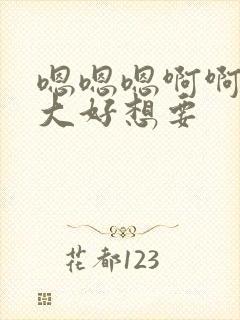 嗯嗯嗯啊啊
大好想要
花都123